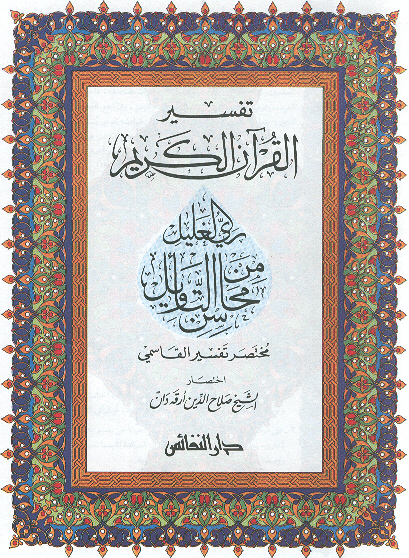 تفسير
القرآن الكريم
ريّ الغليل
من محاسن التأويل
مختصر تفسير القاسمي
اختصار
الشيخ صلاح الدين أرقه دان
دار النفائس